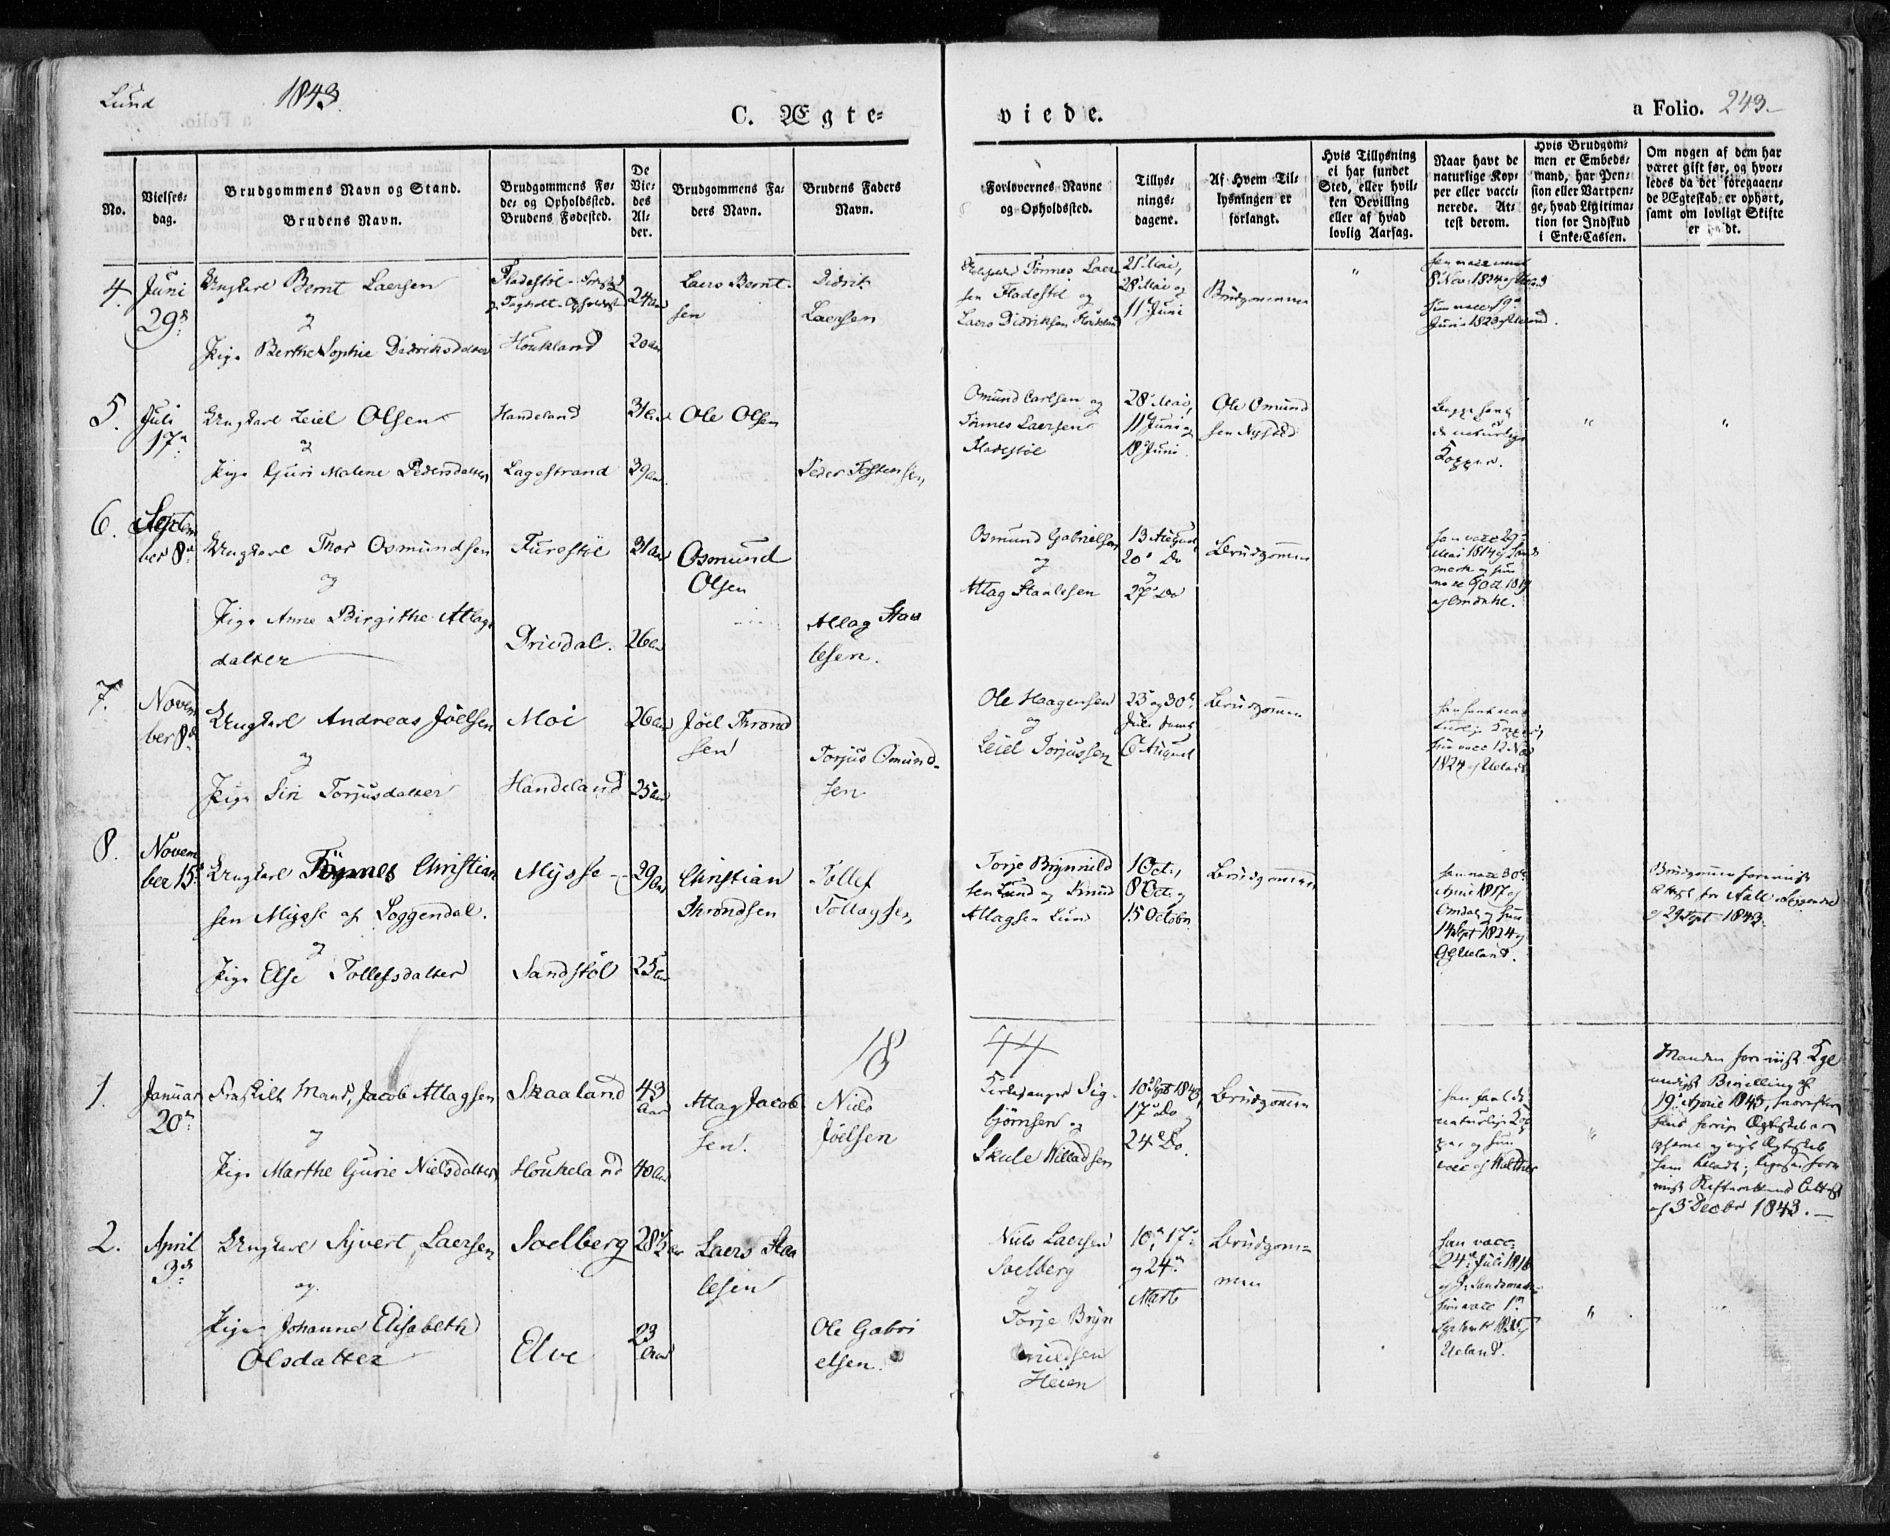 Lund 1843.
C. Ægte=
viede.
a Folio. 243.
No.
Vielses=
dag.
Brudgommens Navn og Stand.
Brudens Navn.
Brudgommens Fø=
de= og Opholdssted.
Brudens Fødested.
De
Vie=
des
Al=
der.
Brudgommens Fa=
ders Navn.
Brudens Faders
Navn.
Forlovernes Navne
og Opholdssted.
Tillys=
nings=
dagene.
Af Hvem Til=
lysningen er
forlangt.
Hvis Tillysning
ei har fundet
Sted, eller hvil=
ken Bevilling
eller af hvad
lovlig Aarsag.
Naar havt de
naturlige Kop=
per eller vacci=
nerede. At=
test derom.
Hvis Brudgom=
men er Embeds=
mand, har Pen=
sion eller Vartpen=
ge, hvad Legitima=
tion for Indskud
i Enke=Cassen.
Om nogen af dem har
været gift før, og hvor=
ledes da det foregaaen=
de Ægteskab er ophørt,
samt om lovligt Skifte
er holdt.
4.
Juni
29de
Ungkarl Bernt Laersen
og
Pige Berthe Sophie Didriksdatter
Fladestöl
Houkland
24 Aar
20 Aar
Laers Bernt
sen
Didrik
Laersen
Tönnes Laer
sen Fladestöl og
Laers Didriksen Houkland
21 Mai,
28 Mai og
11 Juni
Brudgommen
"
8 Nov 1824 af Ueland
5.
Juli
17de
Ungkarl Leiel Olsen
og
Pige Guri Malene Pedersdatter
Handeland
Lagestrand
31 Aar
39 Aar
Ole Olsen
Peder Tostensen
Omund Carlsen og
Tönnes Laersen
Fladestöl
28 Mai,
11 Juni og
18 Juni
Ole Omund
sen
Begge havt
de naturlige
Kopper.
"
"
6.
Septem
ber 8de
Ungkarl Thor Osmundsen
og
Pige Anne Birgithe Atlags
datter
Furestöl
Drivdal.
31 Aar
26 Aar
Osmund
Olsen
Atlag Staa
lesen.
Osmund Gabrielsen
og
Atlag Staalesen
13 August
20 Do
og
27 Do
Brudgommen
7.
Novem
ber 8de
Ungkarl Andreas Jöelsen
og
Pige Siri Torjusdatter
Moi
Handeland
26 Aar
25 Aar
Jöel Thrond
sen
Torjus Omund=
sen
Ole Haagensen
og
Leiel Torjussen
23 og 30
Juli samt
6 August
Brudgommen
1824 af Ueland
8.
Novem
ber 15de
Ungkarl Tönnes Christian
sen Mysse af Soggendal.
og
Pige Else Tollefsdatter
Mysse
Sandstöl
29 Aar
25 Aar
Christian
Throndsen
Tollef
Tollagsen
Torje Brynnild
sen Lund og Knud
Atlagsen Lund
1 Oct.,
8 Oct. og
15 October
Brudgommen
Han vacc 30
April 1817 af
Omdal og hun
14 Sept 1824 af
Ueland.
af 29 Sept 1843.
18
44
1.
Januar
20de
Fraskilt Mand, Jacob Atlagsen
og
Pige Marthe Gurie Nielsdatter
Skaaland
Houkeland
43
Aar
40 Aar
Atlag Jacob
sen.
Niels
Jöelsen
Kirkesanger Sig
björnsen og
Skule Willadsen
10 Sept 1843,
17 Do
og
24 Do.
Brudgommen
Han havt de
naturlige Kop
per og hun
vacc af
"
Manden forevist Kge
Bevilling af
19 April 1843, hvorefter
hans forrige Ægteskab er
og nyt Ægteskab
ham tilladt;
Attest
af 3 Decbr 1843.
2.
April
3de
Ungkarl Syvert Laersen
og
Pige Johanne Elisabeth
Olsdatter
Soelberg
Elve
28½ Aar
23
Aar
Laers Staa
lesen
Ole Gabri
elsen.
Niels Laersen
Soelberg
og
Torje Bryn
nildsen
Heien
10, 17
og 24
Marts
Brudgom=
men
Han vacc.
24 Juli 1816
Hun vacc 1
Ueland.
"